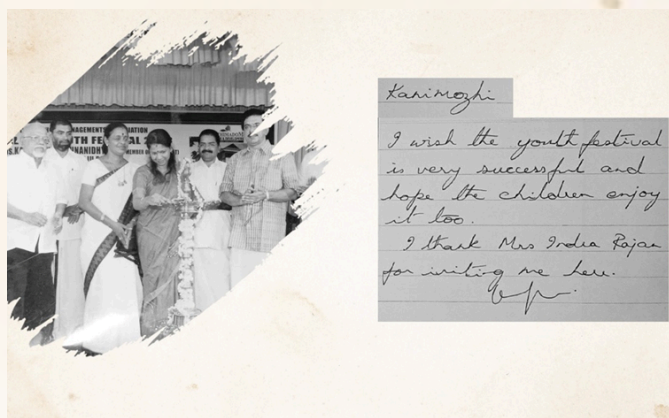 ANAGEMENT
UTH FE
Kanimozhi
I wish the youth festival
is very successful and
hope the children enjoy
it too.
I thank Mrs Indra Rajan
for inviting me here.